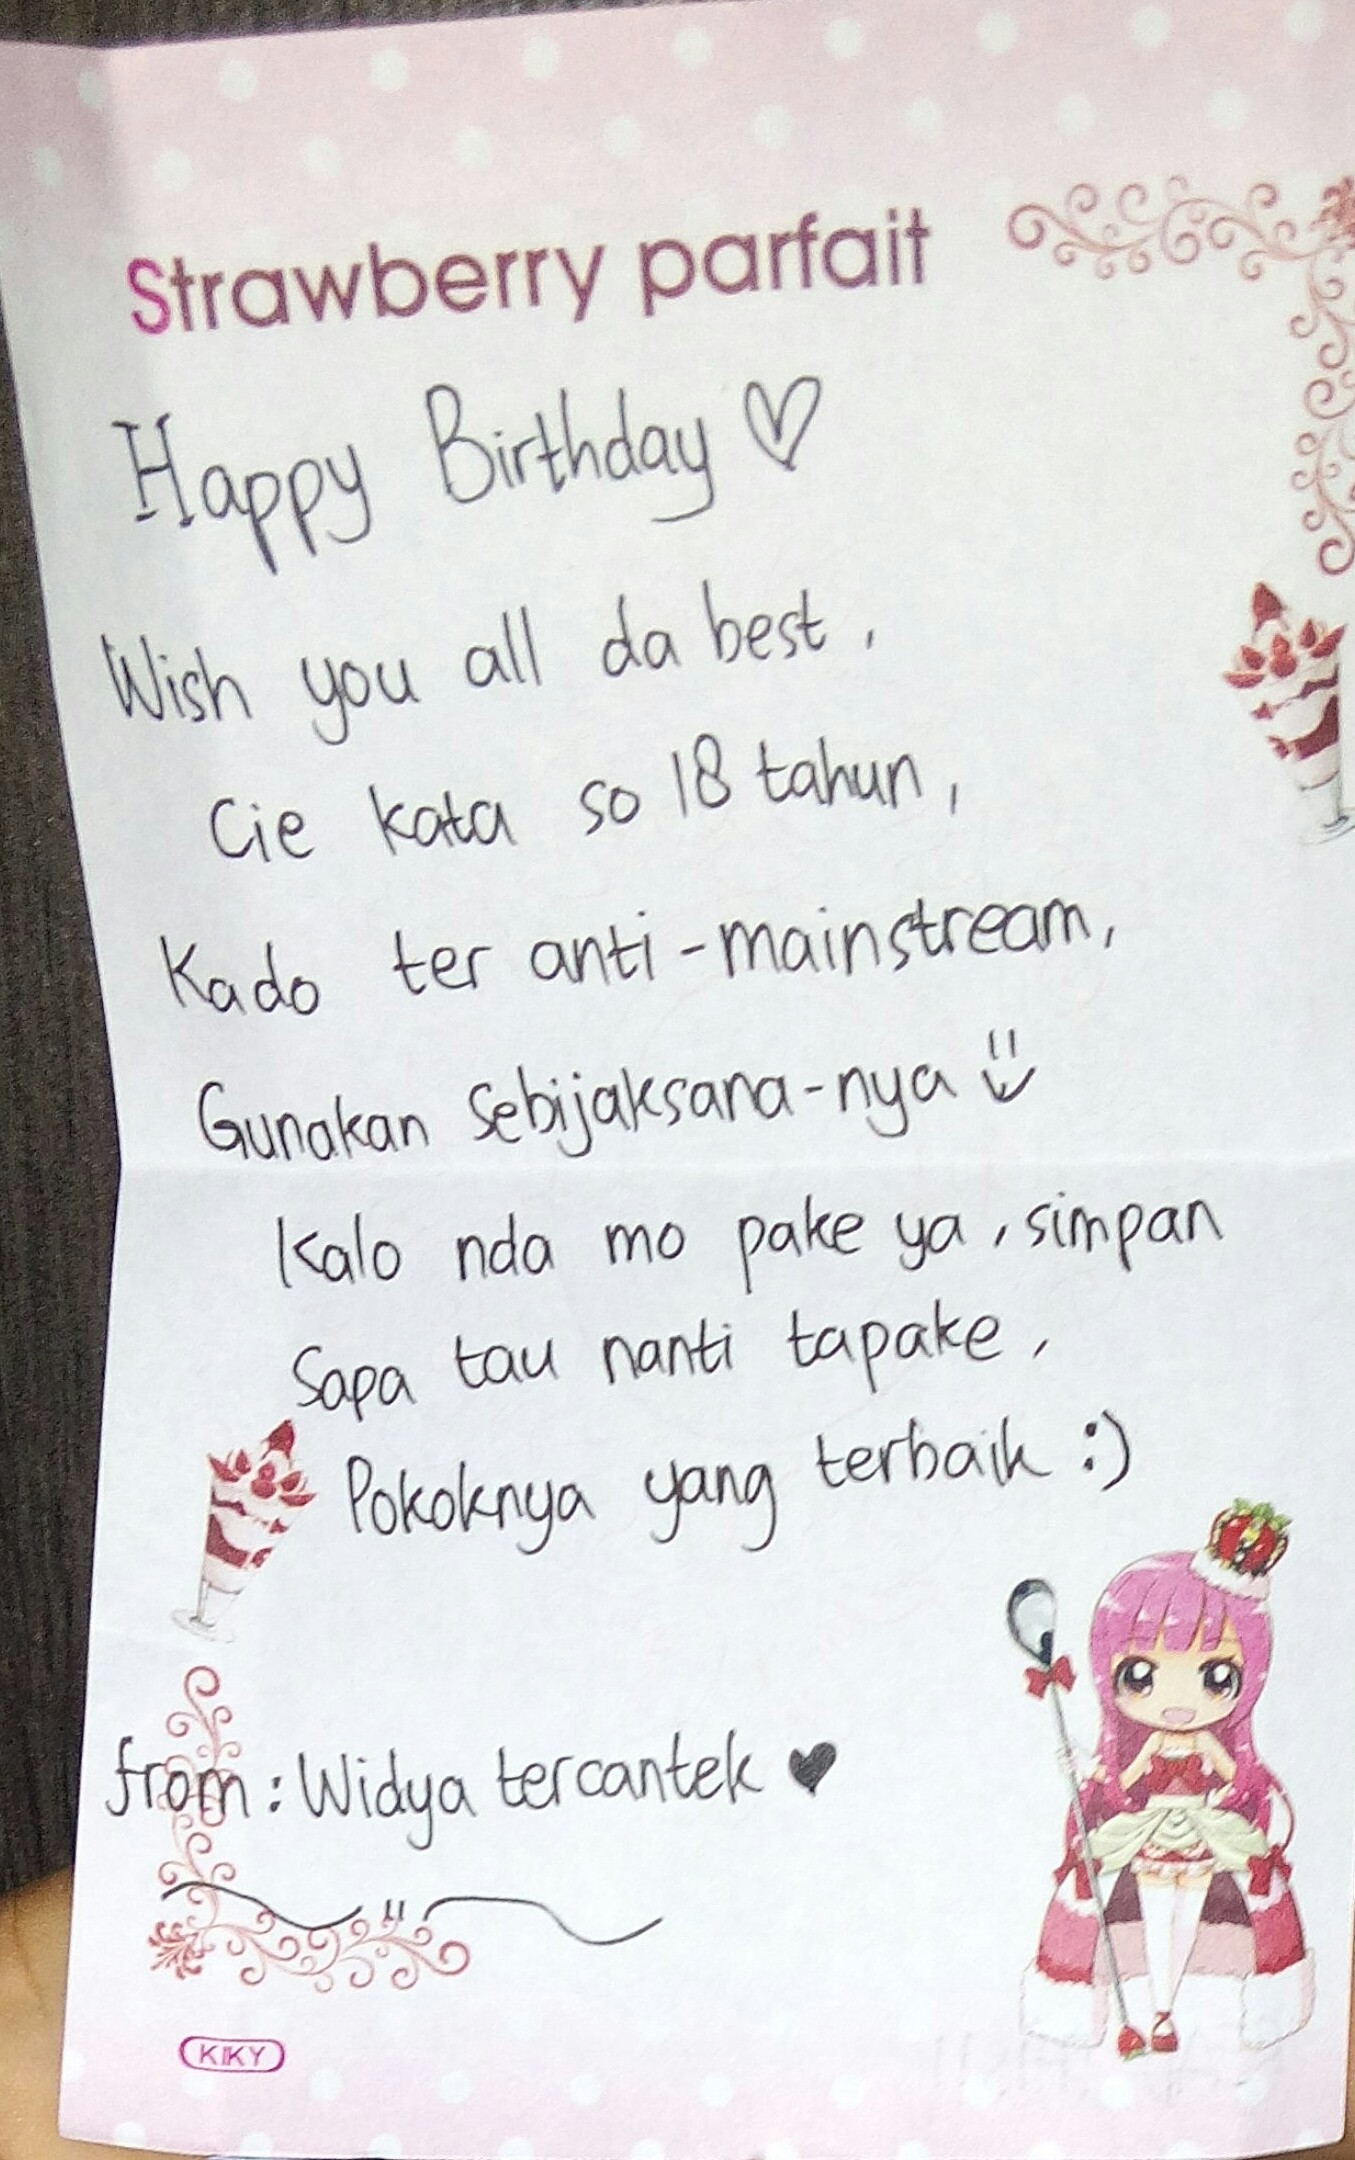 Strawberry parfait
Happy Birthday ♡
Wish you all da best,
Cie kata so 18 tahun,
Kado ter anti-mainstream,
Gunakan sebijaksana-nya
Kalo nda mo pake ya, simpan
Sapa tau nanti tapake,
Pokoknya yang terbaik :)
from : Widya tercantek ♥
KIKY